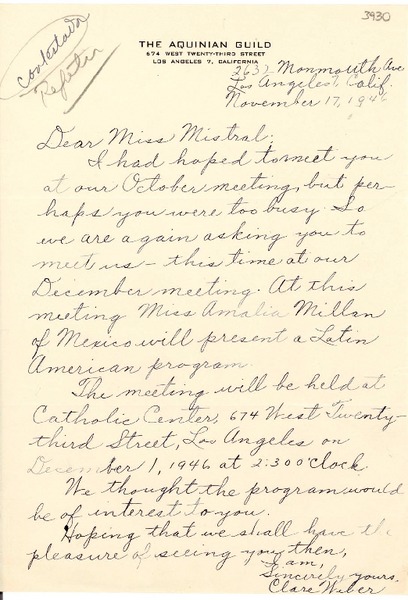 3930
contestada
THE AQUINIAN GUILD
674 WEST TWENTY-THIRD STREET
LOS ANGELES 7, CALIFORNIA
2632 Monmouth Ave
Los Angeles 7, Calif.
November 17, 1946
Dear Miss Mistral:
I had hoped to meet you
at our October meeting, but per-
haps you were too busy. So
we are again asking you to
meet us - this time at our
December meeting. At this
meeting Miss Amalia Millan
of Mexico will present a Latin
American program.
The meeting will be held at
Catholic Center, 674 West Twenty-
third Street, Los Angeles on
December 1, 1946 at 2:30 o'clock.
We thought the program would
be of interest to you.
Hoping that we shall have the
pleasure of seeing you then,
I am,
Sincerely yours,
Clare Weber